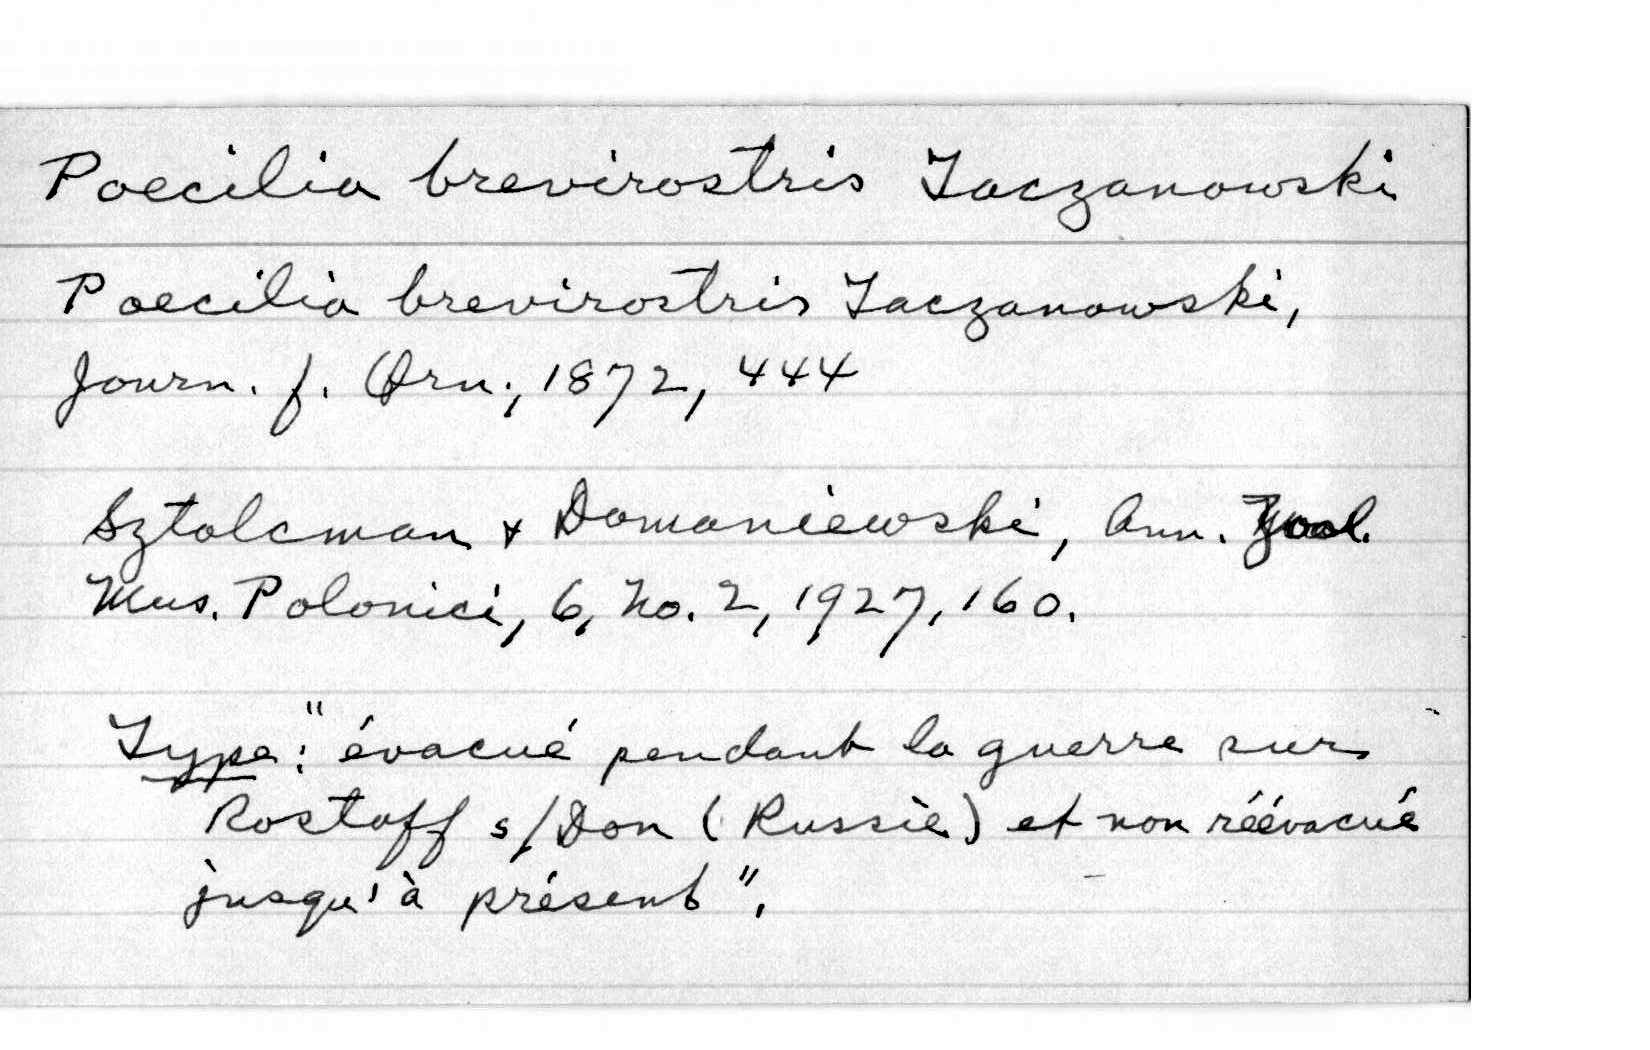 Poecilia brevirostris Taczanowski
Poecilia brevirostris Taczanowski,
Journ. f. Orn., 1872, 444
Sztolcman & Domaniewski, Ann. Zool.
Mus. Polonici, 6, No. 2, 1927, 160.
Type: "évacué pendant la guerre sur
Rostoff s/Don (Russie) et non réévacué
jusqu'à présent".